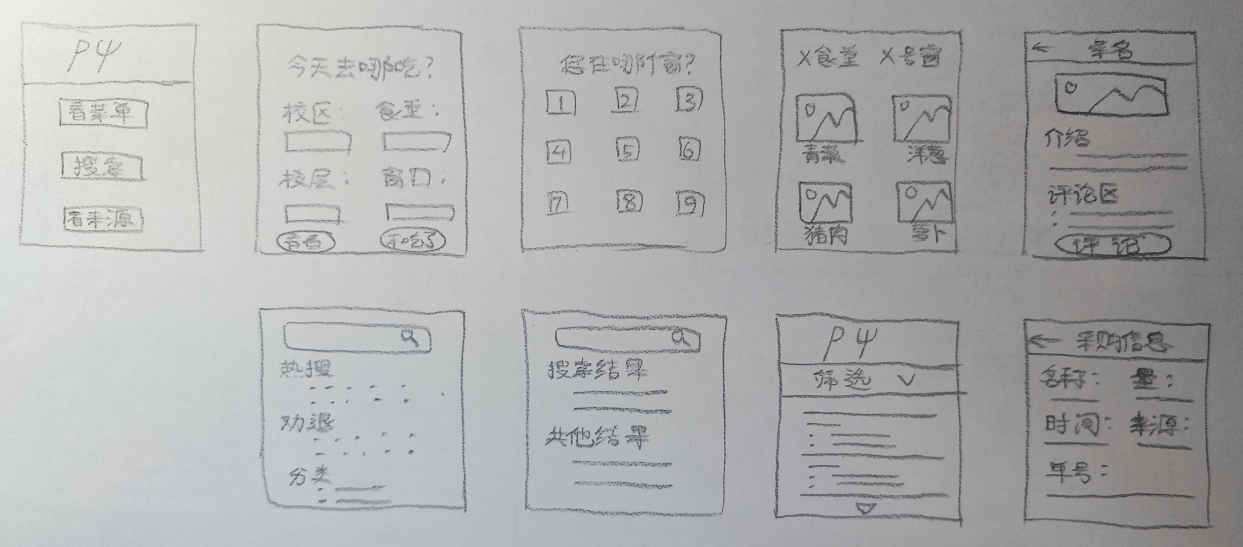 PΨ
看菜单
搜索
看来源
今天去哪吃?
校区: 食堂:
楼层: 窗口:
看看 不吃了
您在哪个窗?
1 2 3
4 5 6
7 8 9
X食堂 X号窗
青菜 洋葱
猪肉 萝卜
← 菜名
介绍
评论区
评论
热搜
劝退
分类
搜索结果
其他结果
PΨ
筛选 ∨
← 采购信息
名称: 量:
时间: 来源:
单号: